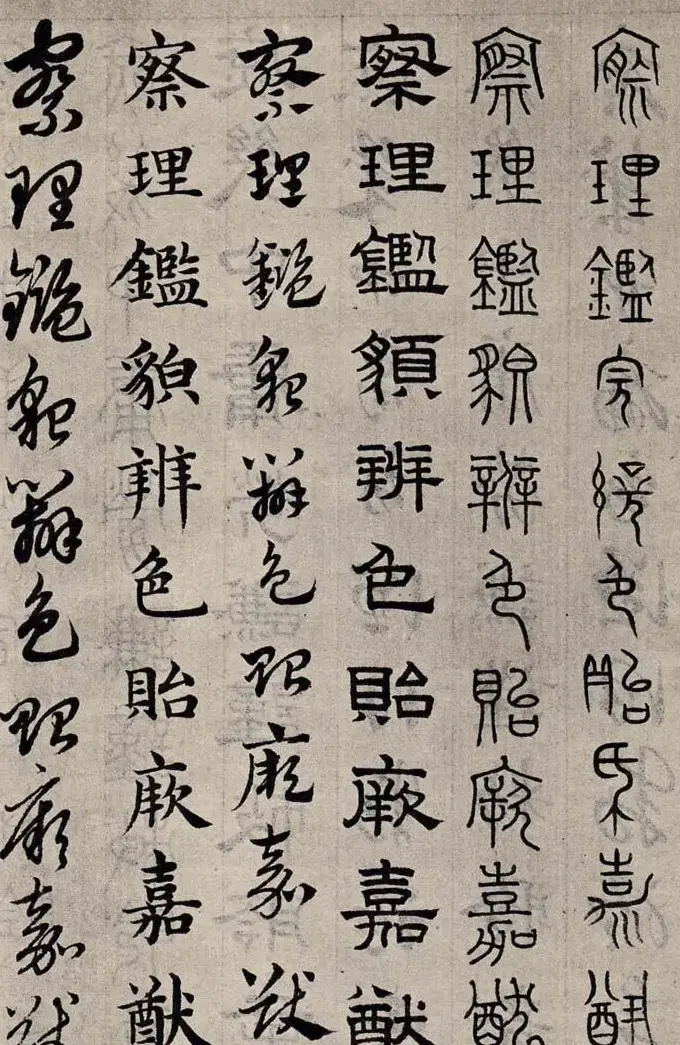 察理鑑貌辨色貽厥嘉猷
察理鑑貌辨色貽厥嘉猷
察理鑑貌辨色貽厥嘉猷
察理鑑貌辨色貽厥嘉猷
察理鑑貌辨色貽厥嘉猷
察理鑑貌辨色貽厥嘉猷